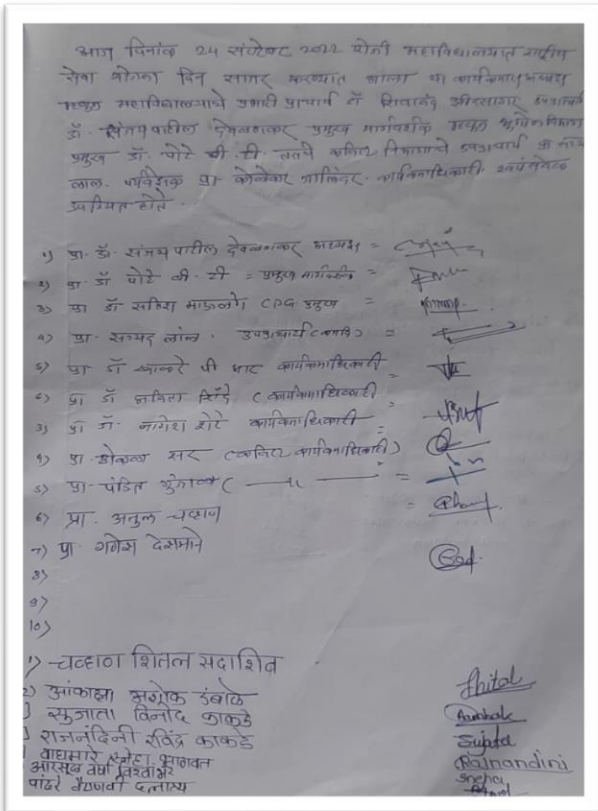 आज दिनांक 24 सप्टेंबर 2022 रोजी महाविद्यालयात राष्ट्रीय
सेवा योजना दिन साजरा करण्यात आला या कार्यक्रमाच्या अध्यक्ष
म्हणून महाविद्यालयाचे प्रभारी प्राचार्य डॉ शिवानंद उपप्राचार्य
डॉ. संजय पाटील देवळाणकर प्रमुख मार्गदर्शक म्हणून भूगोल विभाग
प्रमुख डॉ. पोटे बी. टी. तसेच कनिष्ठ विभागाचे उपप्राचार्य प्रा सय्यद
लाल. पर्यवेक्षक प्रा कोलेकर जालिंदर. कार्यक्रमाधिकारी स्वयंसेवक
उपस्थित होते.
1) प्रा. डॉ. संजय पाटील देवळाणकर अध्यक्ष =
2) प्रा. डॉ पोटे बी. टी = प्रमुख मार्गदर्शक =
3) प्रा डॉ सविता CPG प्रमुख =
4) प्रा. सय्यद लाल. उपप्राचार्य (कनि) =
5) प्रा डॉ पी आर कार्यक्रमाधिकारी =
6) प्रा डॉ सविता शिंदे (कार्यक्रमाधिकारी =
3) प्रा डॉ. नागेश शेटे कार्यक्रमाधिकारी =
4) प्रा. ढोकळ सर (कनिष्ठ कार्यक्रमाधिकारी) =
5) प्रा. पंडित गुंजाळ ( —— 〃 —— =
6) प्रा. अतुल चव्हाण =
7) प्रा. गणेश देशमाने
8)
9)
10)
1) चव्हाण शितल सदाशिव Shital
2) आकांक्षा अशोक डंबाळे Aambhale
सुजाता विनोद काकडे Sujata
राजनंदिनी रविंद्र काकडे Rajnandini
वाघमारे स्नेहा भागवत Sneha
आरसूळ वर्षा विश्वांभर
पांढरे वैष्णवी दत्तात्रय